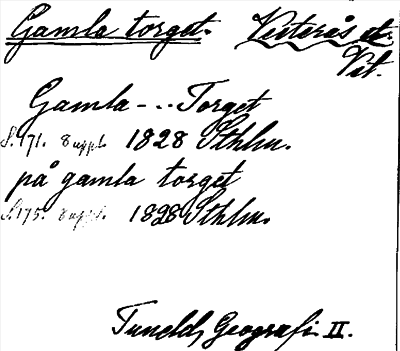 Gamla torget. Västerås st.
Vstl.
Gamla - .. Torget
S. 171. Suppl. 1828 Sthlm.
på gamla torget
S. 175. Suppl. 1828 Sthlm.
Tunelds Geografi II.